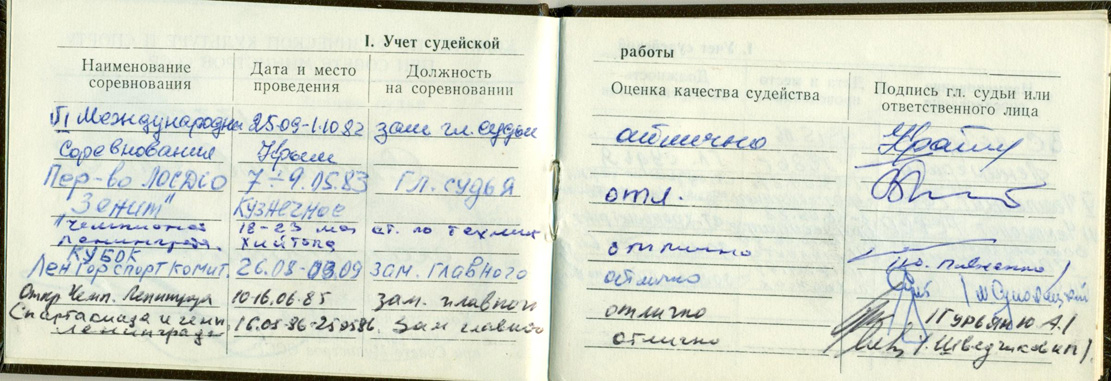 I. Учет судейской
Наименование соревнования
Дата и место проведения
Должность на соревновании
Международн 25.09-1.10 82 зам гл. судьи
Соревнования Крым
Пер-во ЛОСДСО 7÷9.05.83 Гл. судья
"Зенит" Кузнечное
Чемпионат 18-23 мая ст. по технике
Ленинград. Хийтола
КУБОК
Ленгорспорткомит. 26.08-03.09 зам. главного
Откр Чемп. Ленинграда 10-16.06.85 зам. главного
Спартакиада и чемп 16.05.86-25.05.86. Зам главного
Ленинграда
работы
Оценка качества судейства
Подпись гл. судьи или ответственного лица
отлично
отл.
отлично
отлично
отлично /Гурьян Ю А./
отлично